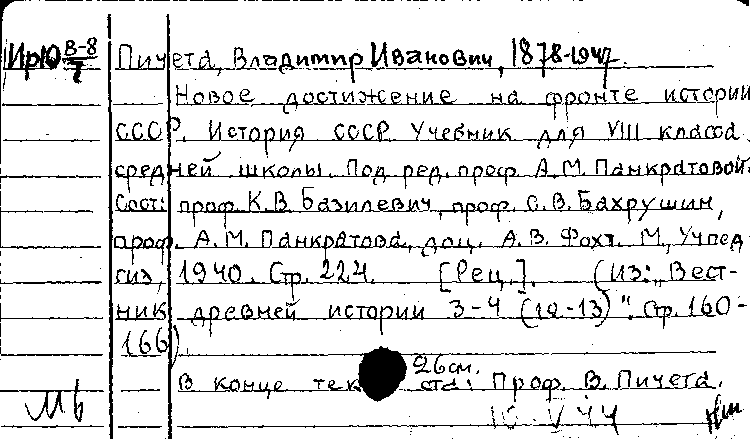 ИрЮ В-8/7 Пичета, Владимир Иванович, 1878-1947.
Новое достижение на фронте истории
СССР. История СССР. Учебник для VIII класса
средней школы. Под ред. проф. А.М. Панкратовой.
Сост: проф. К.В. Базилевич, проф. С.В. Бахрушин,
проф. А.М. Панкратова, доц. А.В. Фохт. М, Учпед
гиз, 1940. Стр. 224. [Рец.]. (Из: „Вест-
ник древней истории 3-4 (12-13)". Стр. 160-
166).
26 см.
В конце текста: Проф. В. Пичета.
10 V 44